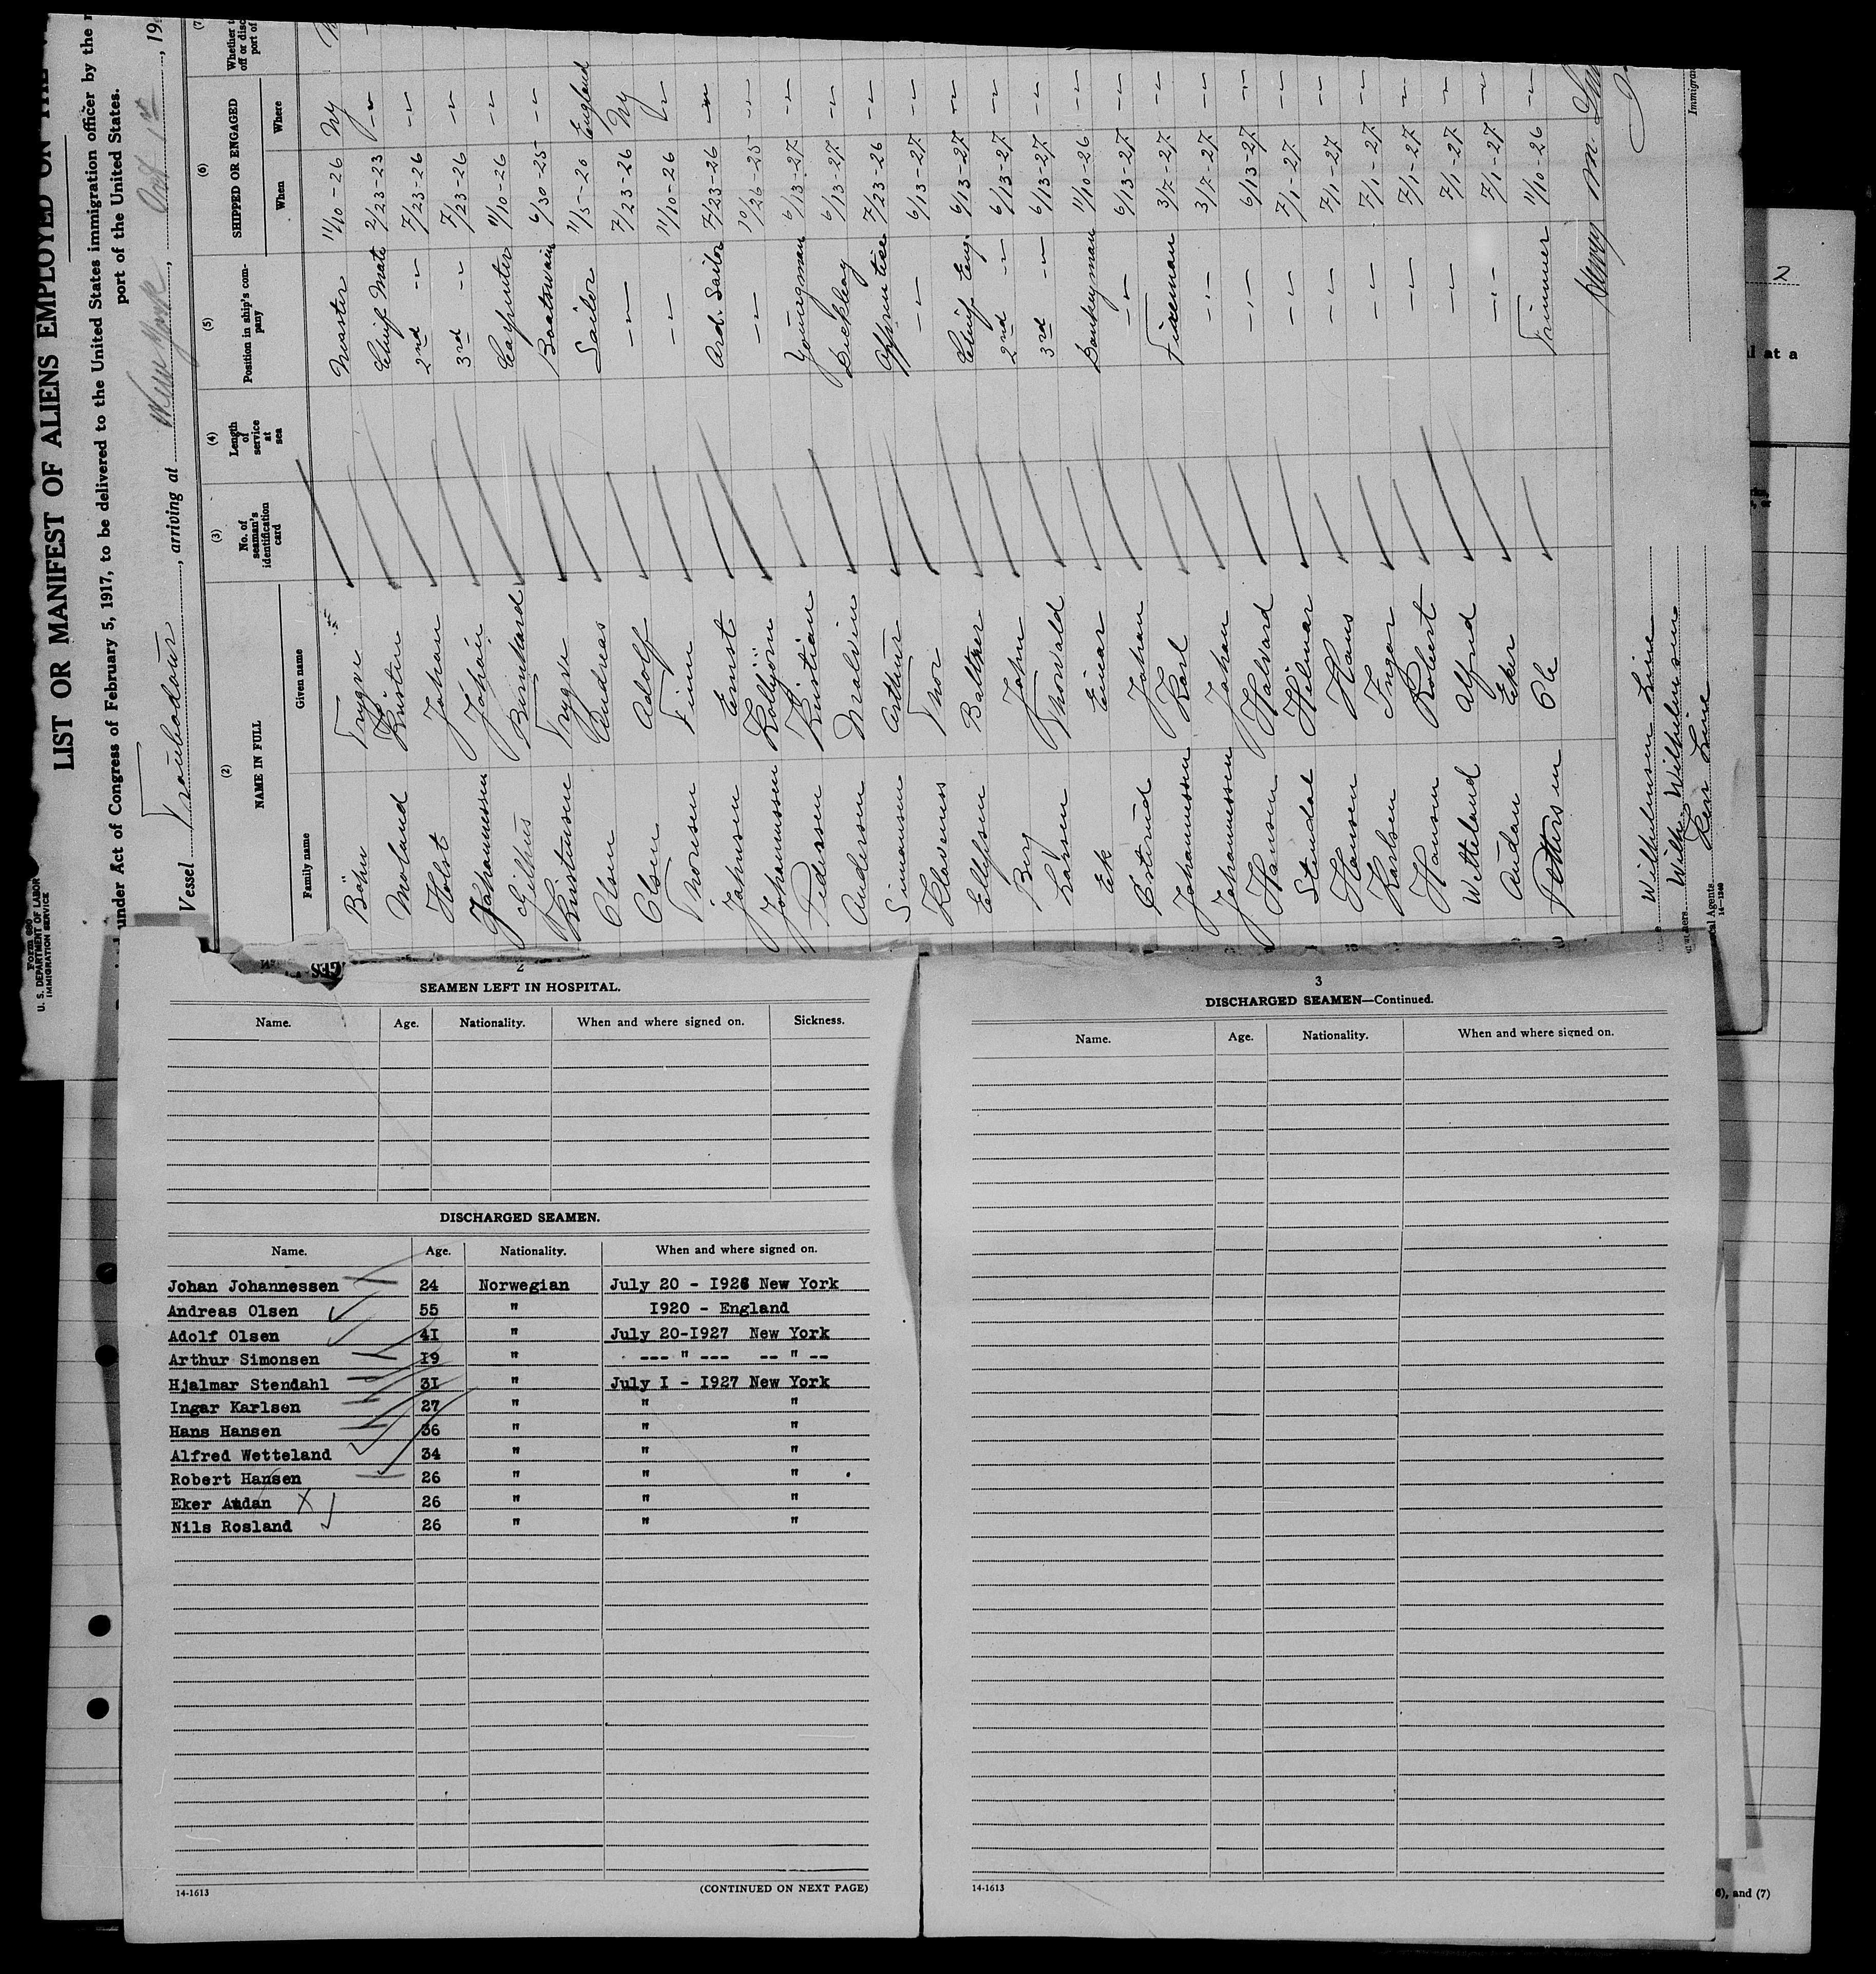 LIST OR MANIFEST OF ALIENS EMPLOYED ON THE
under Act of Congress of February 5, 1917, to be delivered to the United States immigration officer by the
port of the United States.
Form 680
U. S. DEPARTMENT OF LABOR
IMMIGRATION SERVICE
Vessel Troubadour, arriving at New York, Oct 1st, 19
(2) (3) (4) (5) (6) (7)
NAME IN FULL No. of seaman's identification card Length of service at sea Position in ship's company SHIPPED OR ENGAGED Whether
Family name Given name When Where
Böhn Trygve Master 11/10-26 NY
Moland Kristen Chief Mate 2/23-23 -"-
Holst Johan 2nd -"- 7/23-26 -"-
Johannessen Johan 3rd -"- 7/23-26 -"-
Gilhus Bernhard Carpenter 11/10-26 -"-
Kristensen Trygve Boatswain 6/30-25 -"-
Olsen Andreas Sailor 11/5-20 England
Olsen Adolf -"- 7/23-26 NY
Thorsen Finn -"- 11/10-26 -"-
Jahnsen Ernst Ord. Sailor 7/23-26 -"-
Johannessen Kolbjörn -"- 10/26-25 -"-
Pedersen Kristian Youngman 6/13-27 -"-
Andersen Malvin Deckboy 6/13-27 -"-
Simonsen Arthur Apprentice 7/23-26 -"-
Klaveness Thor -"- 6/13-27 -"-
Ellefsen Balthser Chief Eng. 6/13-27 -"-
Berg John 2nd -"- 6/13-27 -"-
Larsen Thorvald 3rd -"- 6/13-27 -"-
Ek Einar Donkeyman 11/10-26 -"-
Östrud Johan -"- 6/13-27 -"-
Johannessen Karl Fireman 3/7-27 -"-
Johannessen Johan -"- 3/7-27 -"-
Hansen Halvard -"- 6/13-27 -"-
Stendal Hilmar -"- 7/1-27 -"-
Hansen Hans -"- 7/1-27 -"-
Karlsen Ingar -"- 7/1-27 -"-
Hansen Robert -"- 7/1-27 -"-
Wetteland Alfred -"- 7/1-27 -"-
Audan Eker -"- 7/1-27 -"-
Pettersen Ole Trimmer 11/10-26 -"-
Henry M.
Immigran
Wilhelmsen Line
Wilh. Wilhelmsen
Local Agents Kerr Line
14-1240
2
at a
6), and (7)
2
SEAMEN LEFT IN HOSPITAL.
Name. Age. Nationality. When and where signed on. Sickness.
DISCHARGED SEAMEN.
Name. Age. Nationality. When and where signed on.
Johan Johannessen 24 Norwegian July 20 - I926 New York
Andreas Olsen 55 " I920 - England
Adolf Olsen 4I " July 20-I927 New York
Arthur Simonsen I9 " --- " --- -- " --
Hjalmar Stendahl 3I " July I - I927 New York
Ingar Karlsen 27 " " "
Hans Hansen 36 " " "
Alfred Wetteland 34 " " "
Robert Hansen 26 " " "
Eker Audan X 26 " " "
Nils Rosland 26 " " "
14-1613
(CONTINUED ON NEXT PAGE)
3
DISCHARGED SEAMEN—Continued.
Name. Age. Nationality. When and where signed on.
14-1613